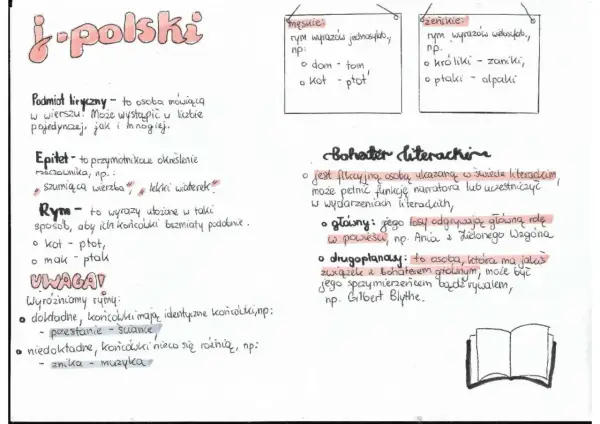 j. polski
Podmiot liryczny - to osoba mówiąca
w wierszu. Może wystąpić w liczbie
pojedynczej, jak i mnogiej.
Epitet - to przymiotnikowe określenie
rzeczownika, np.:
"szumiąca wierzba", "lekki wiaterek".
Rym - to wyrazy ułożone w taki
sposób, aby ich końcówki brzmiały podobnie.
o kot - płot,
o mak - ptak
UWAGA!
Wyróżniamy rymy:
• dokładne, końcówki mają identyczne końcówki, np:
- przestanie - śniadanie,
• niedokładne, końcówki nieco się różnią, np:
- znika - muzyka
męskie:
rym wyrazów jednosylab.,
np:
o dom - tom
o kot - płot
żeńskie:
rym wyrazów wielosylab.,
np.
o króliki - zaniki,
o ptaki - alpaki
Bohater literacki
o jest fikcyjną osobą ukazaną w świecie literackim,
może pełnić funkcję narratora lub uczestniczyć
w wydarzeniach literackich,
o główny: jego losy odgrywają główną rolę
w powieści, np. Ania z Zielonego Wzgórza
o drugoplanowy: to osoba, która ma jakiś
związek z bohaterem głównym, może być
jego sprzymierzeńcem bądź rywalem,
np. Gilbert Blythe.